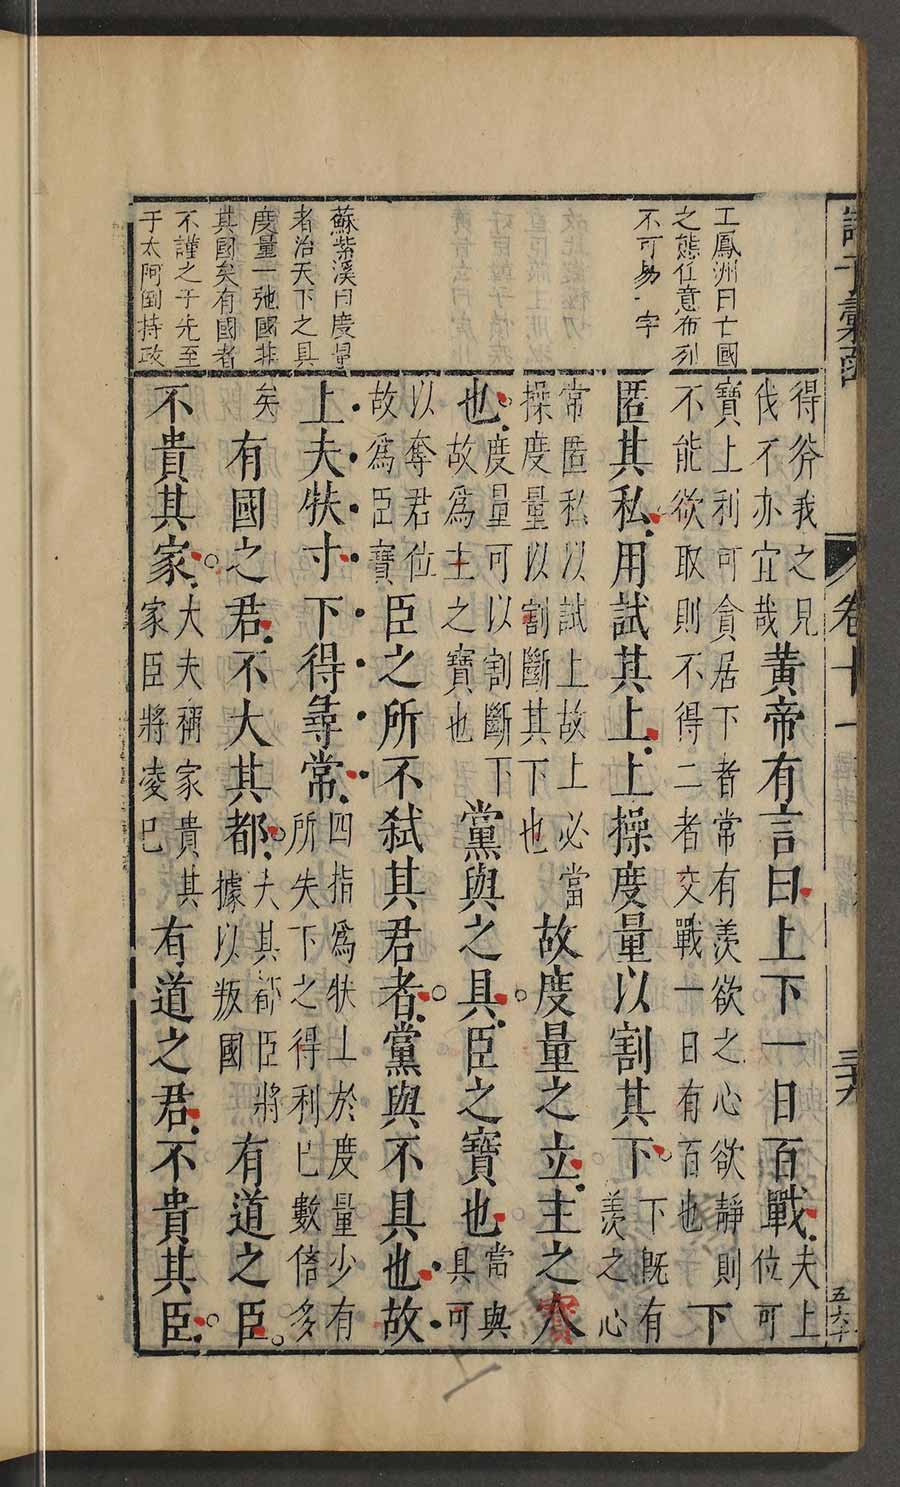 諸子彙函
卷十一
三十六
王鳳洲曰亡國
之態任意布列
不可易一字
蘇紫溪曰度量
者治天下之具
度量一弛國非
其國矣有國者
不謹之于先至
于太阿倒持政
得咎我之見
伐不亦宜哉
黃帝有言曰上下一日百戰
夫上
位可
寶上利可貪居下者常有羨欲之心欲靜則
不能欲取則不得二者交戰一日有百也
下
匿其私用試其上上操度量以割其下
下既有
羨之心
常匿私以試上故上必當
操度量以割斷其下也
故度量之立主之寶
也
度量可以割斷下
故為主之寶也
黨與之具臣之寶也
當與
具可
以奪君位
故為臣寶
臣之所不弒其君者黨與不具也故
上夫扶寸下得尋常
四指為扶上於度量少有
所失下之得利已數倍多
矣
有國之君不大其都
大其都臣將
據以叛國
有道之臣
不貴其家
大夫稱家貴其
家臣將凌已
有道之君不貴其臣